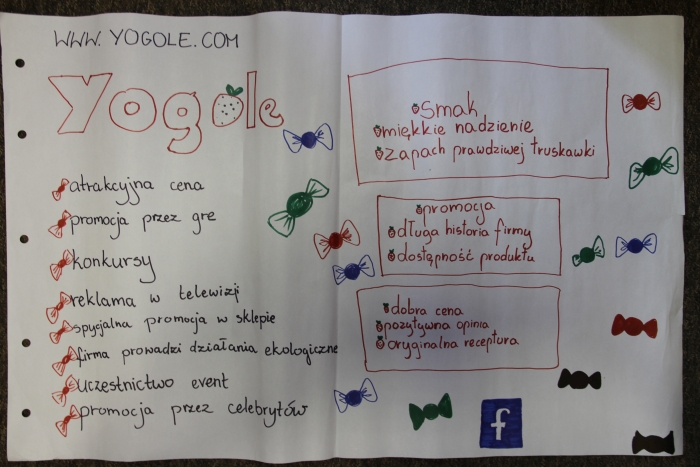 WWW. YOGOLE.COM
Yogole
atrakcyjna cena
promocja przez grę
konkursy
reklama w telewizji
spycjalna promocja w sklepie
firma prowadzi działania ekologiczne
uczestnictwo event
promocja przez celebrytów
smak
miękkie nadzienie
zapach prawdziwej truskawki
promocja
długa historia firmy
dostępność produktu
dobra cena
pozytywna opinia
oryginalna receptura
f